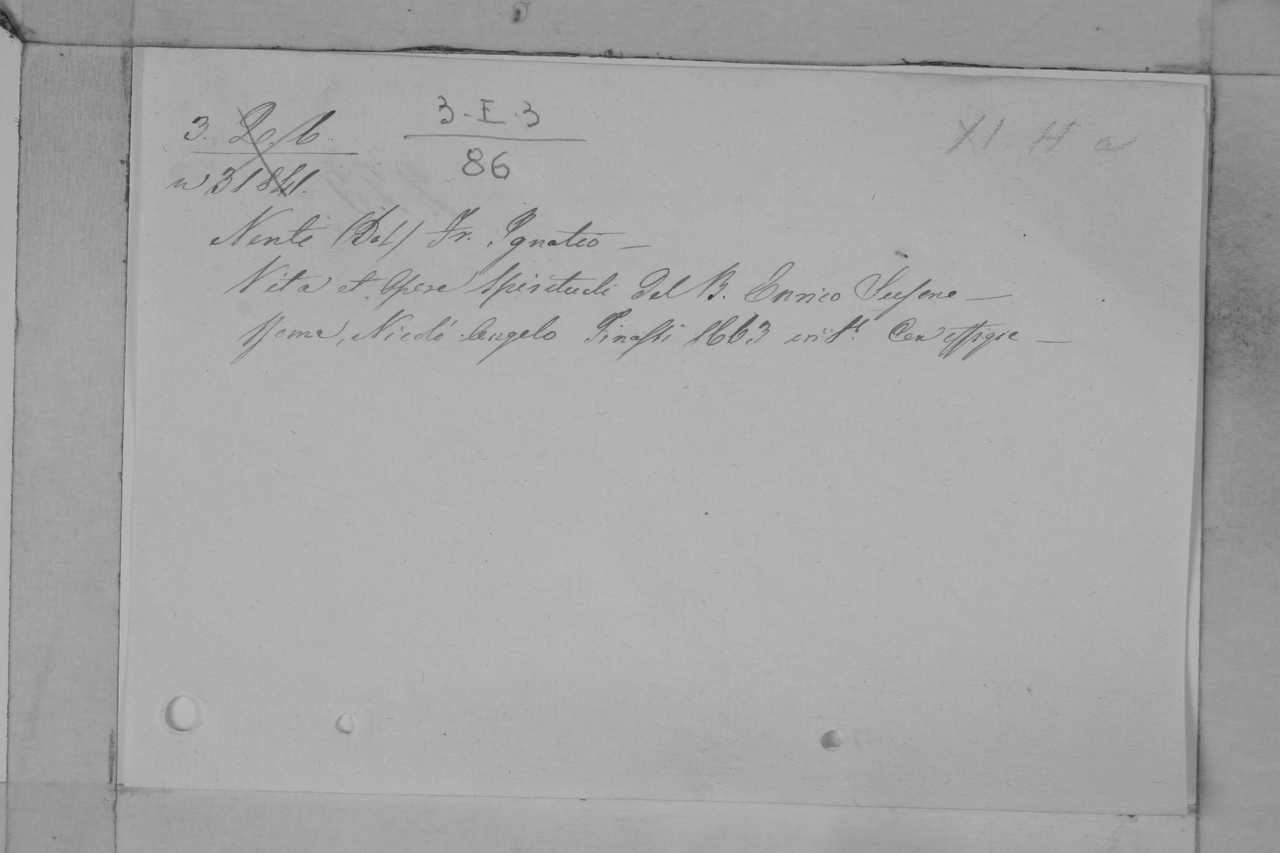 3. 20. b. 3-I-3
86
n 31841.
XI. H a
Nente (Del) Fr. Ignatio —
Vita et Opere Spirituali del B. Enrico Susone —
Roma, Nicolò Angelo Tinassi 1663 in 4º. Con effigie —